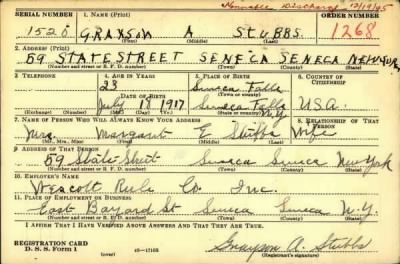 Honorable Discharge 12/19/45
SERIAL NUMBER 1. NAME (Print) ORDER NUMBER
1526 GRAYSON A STUBBS 1268
(First) (Middle) (Last)
2. ADDRESS (Print)
59 STATE STREET SENECA SENECA NEW YORK
(Number and street or R. F. D. number) (Town) (County) (State)
3. TELEPHONE 4. AGE IN YEARS 5. PLACE OF BIRTH 6. COUNTRY OF CITIZENSHIP
28 Seneca Falls
DATE OF BIRTH (Town or county)
July 18 1917 Seneca Falls N.Y. U.S.A.
(Exchange) (Number) (Mo.) (Day) (Yr.) (State or country)
7. NAME OF PERSON WHO WILL ALWAYS KNOW YOUR ADDRESS 8. RELATIONSHIP OF THAT PERSON
Mrs. Margaret E Stubbs Wife
(Mr., Mrs., Miss) (First) (Middle) (Last)
9. ADDRESS OF THAT PERSON
59 State Street Seneca Seneca New York
(Number and street or R. F. D. number) (Town) (County) (State)
10. EMPLOYER'S NAME
Wescott Rule Co. Inc.
11. PLACE OF EMPLOYMENT OR BUSINESS
East Bayard St Seneca Seneca N.Y.
(Number and street or R. F. D. number) (Town) (County) (State)
I AFFIRM THAT I HAVE VERIFIED ABOVE ANSWERS AND THAT THEY ARE TRUE.
REGISTRATION CARD
D. S. S. Form 1 (over) Grayson A. Stubbs
(Registrant's signature)